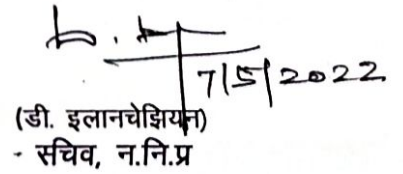 7/5/2022
(डी. इलानचेझियन)
- सचिव, न.नि.प्र